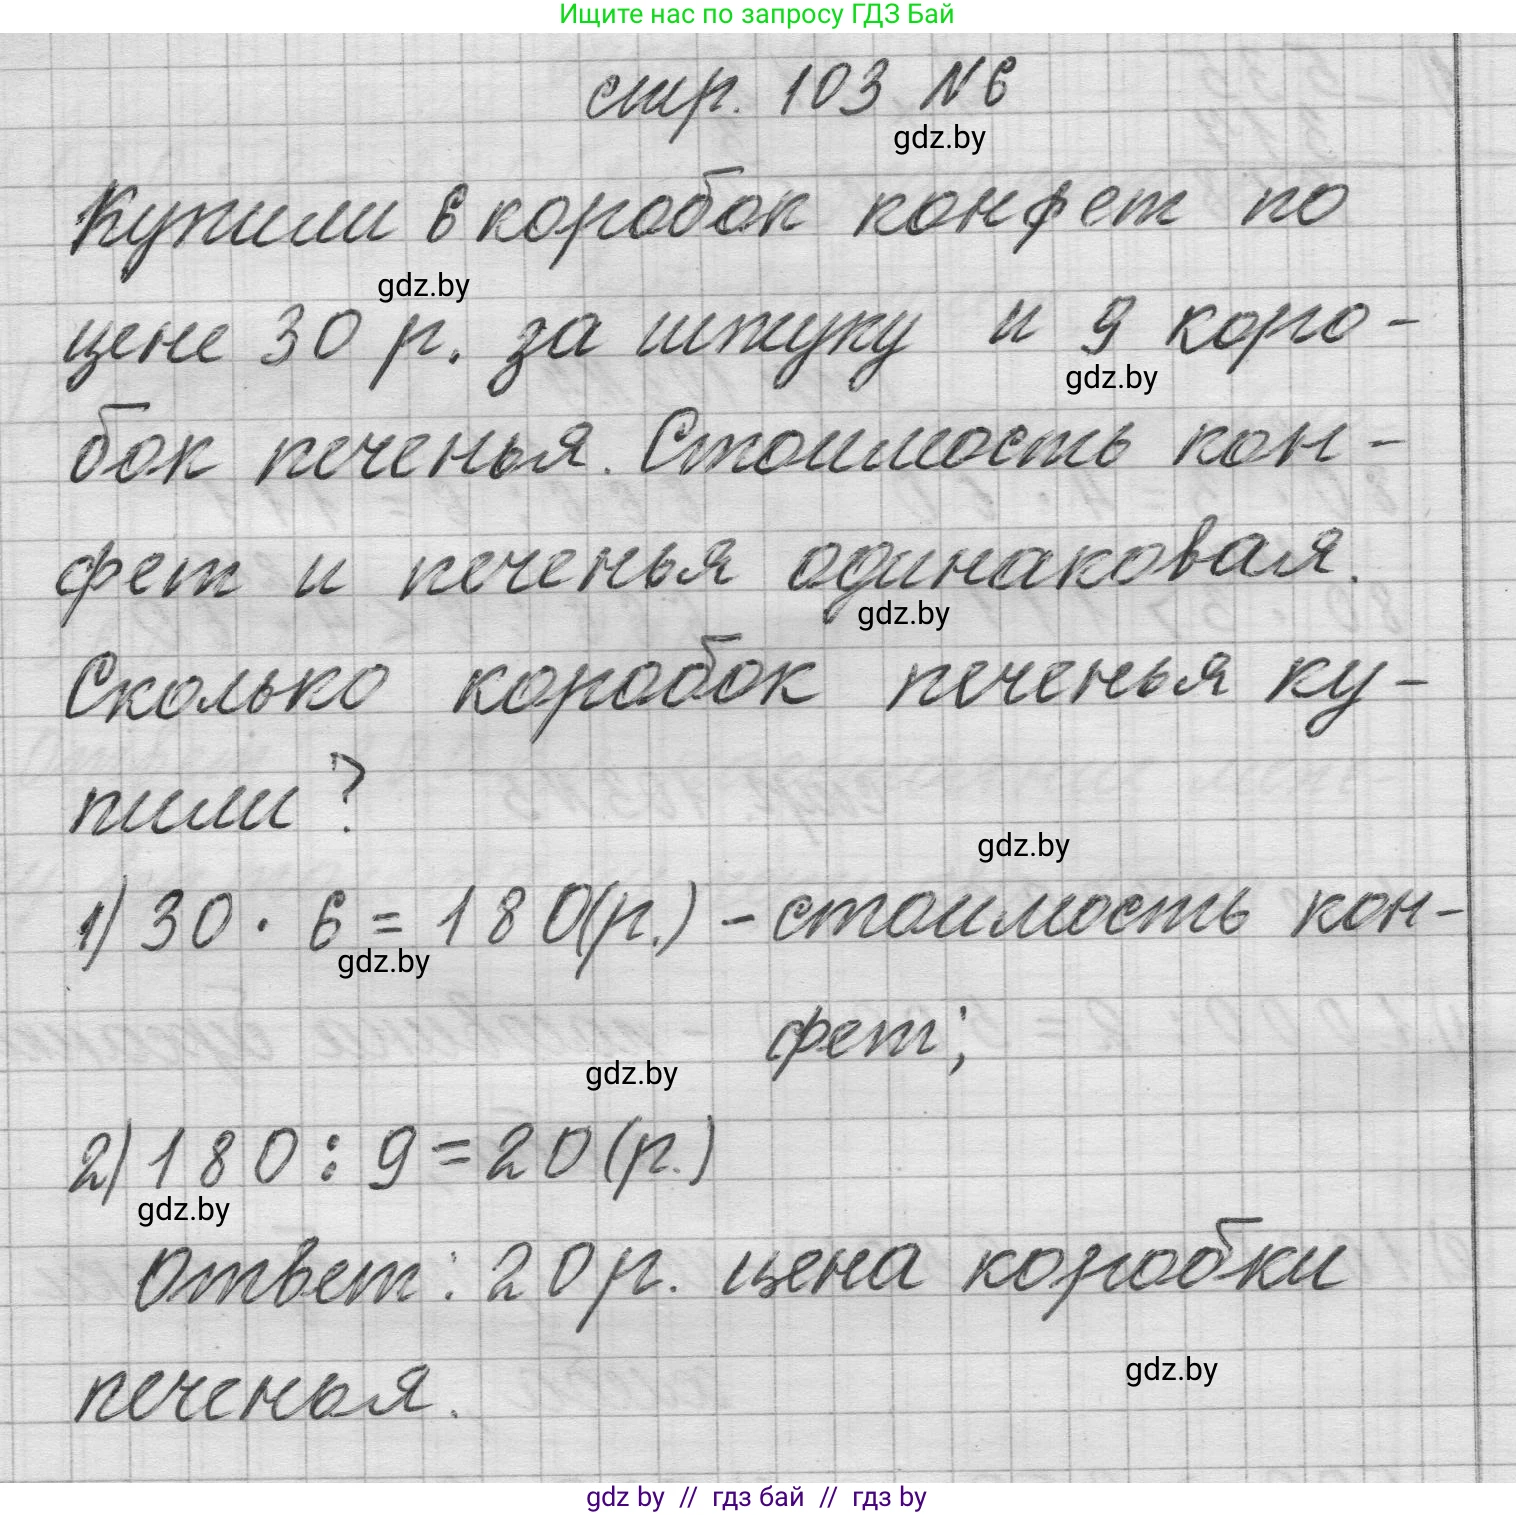 Ищите нас по запросу ГДЗ Бай
стр. 103 №6
gdz.by
Купили 6 коробок конфет по
gdz.by
цене 30 р. за штуку и 9 коро-
gdz.by
бок печенья. Стоимость кон-
фет и печенья одинаковая.
gdz.by
Сколько коробок печенья ку-
пили?
gdz.by
1) 30 · 6 = 180(р.) - стоимость кон-
gdz.by
фет;
gdz.by
2) 180 : 9 = 20 (р.)
gdz.by
Ответ: 20 р. цена коробки
gdz.by
печенья.
gdz by // гдз бай // гдз by